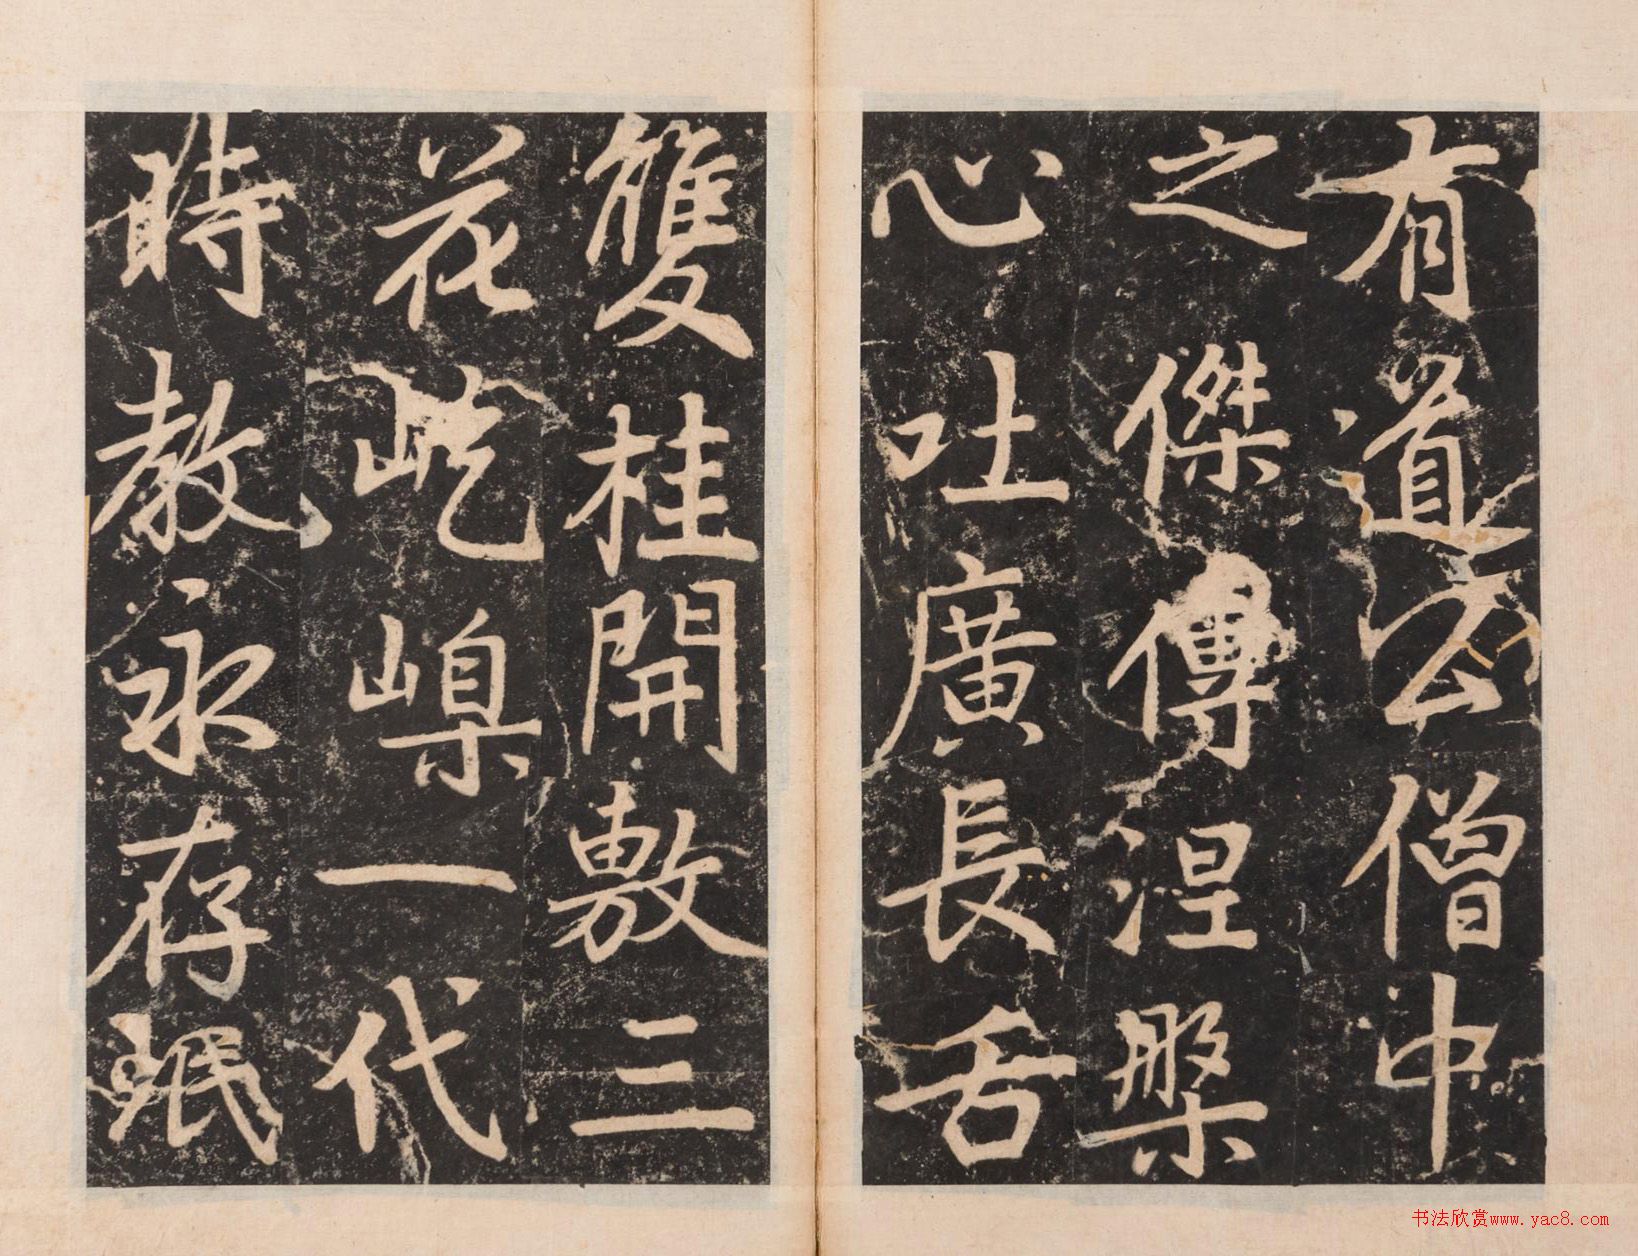 有道公僧中
之傑傳涅槃
心吐廣長舌
雙桂開敷三
花屹嵲一代
時教永存
书法欣赏www.yac8.com